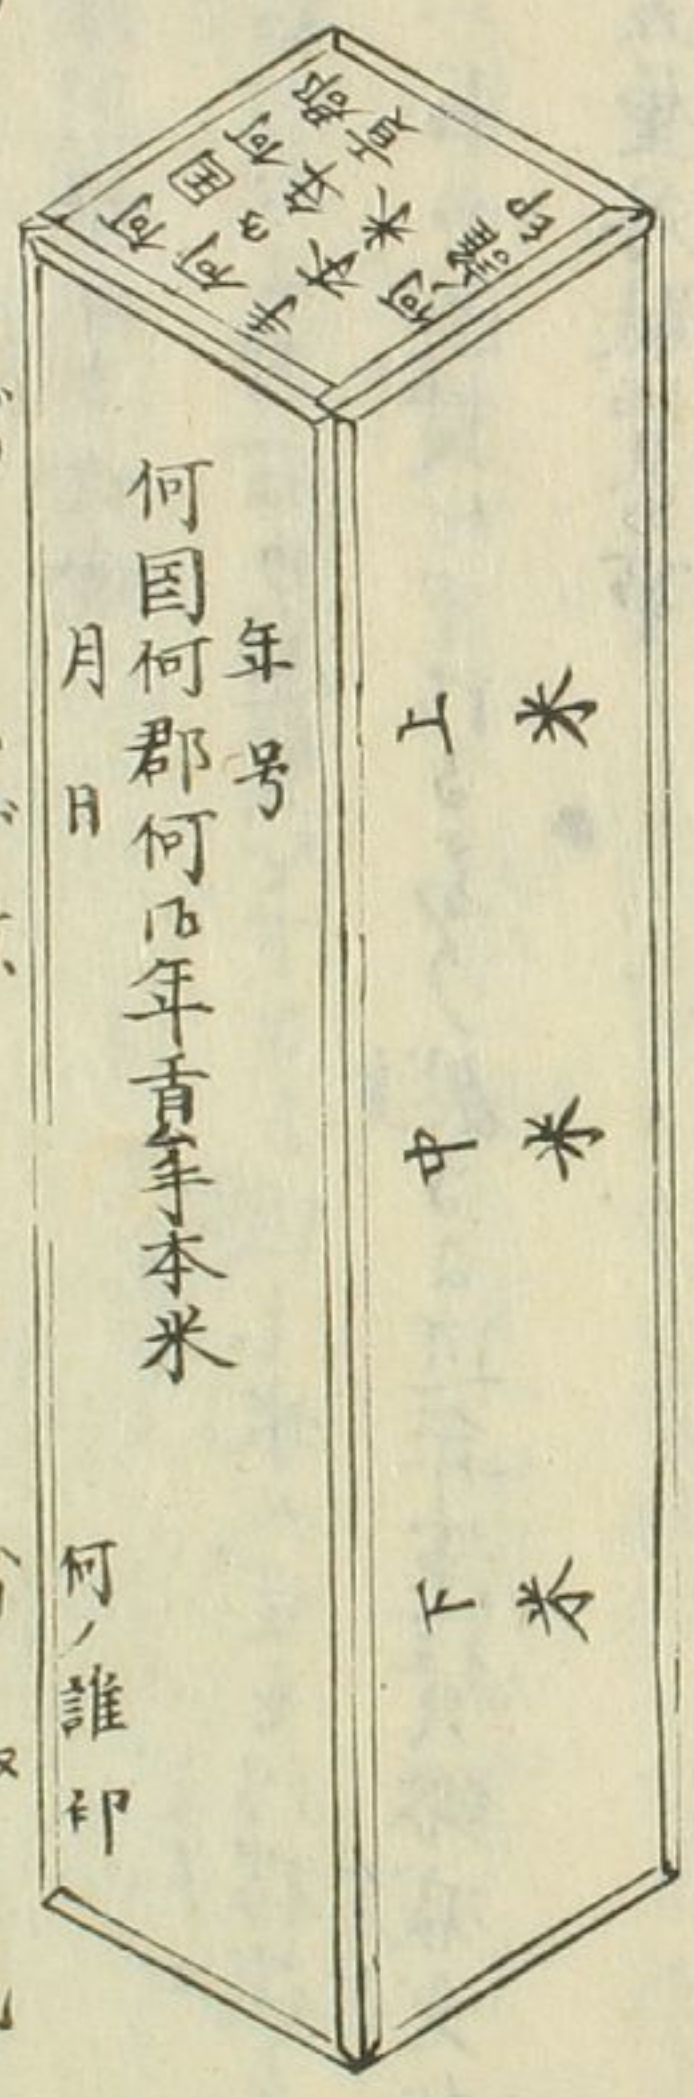 何国何郡
何御年貢
手本米
何誰印
年号
何国何郡何御年貢手本米
月日
何ノ誰印
上米
中米
下米